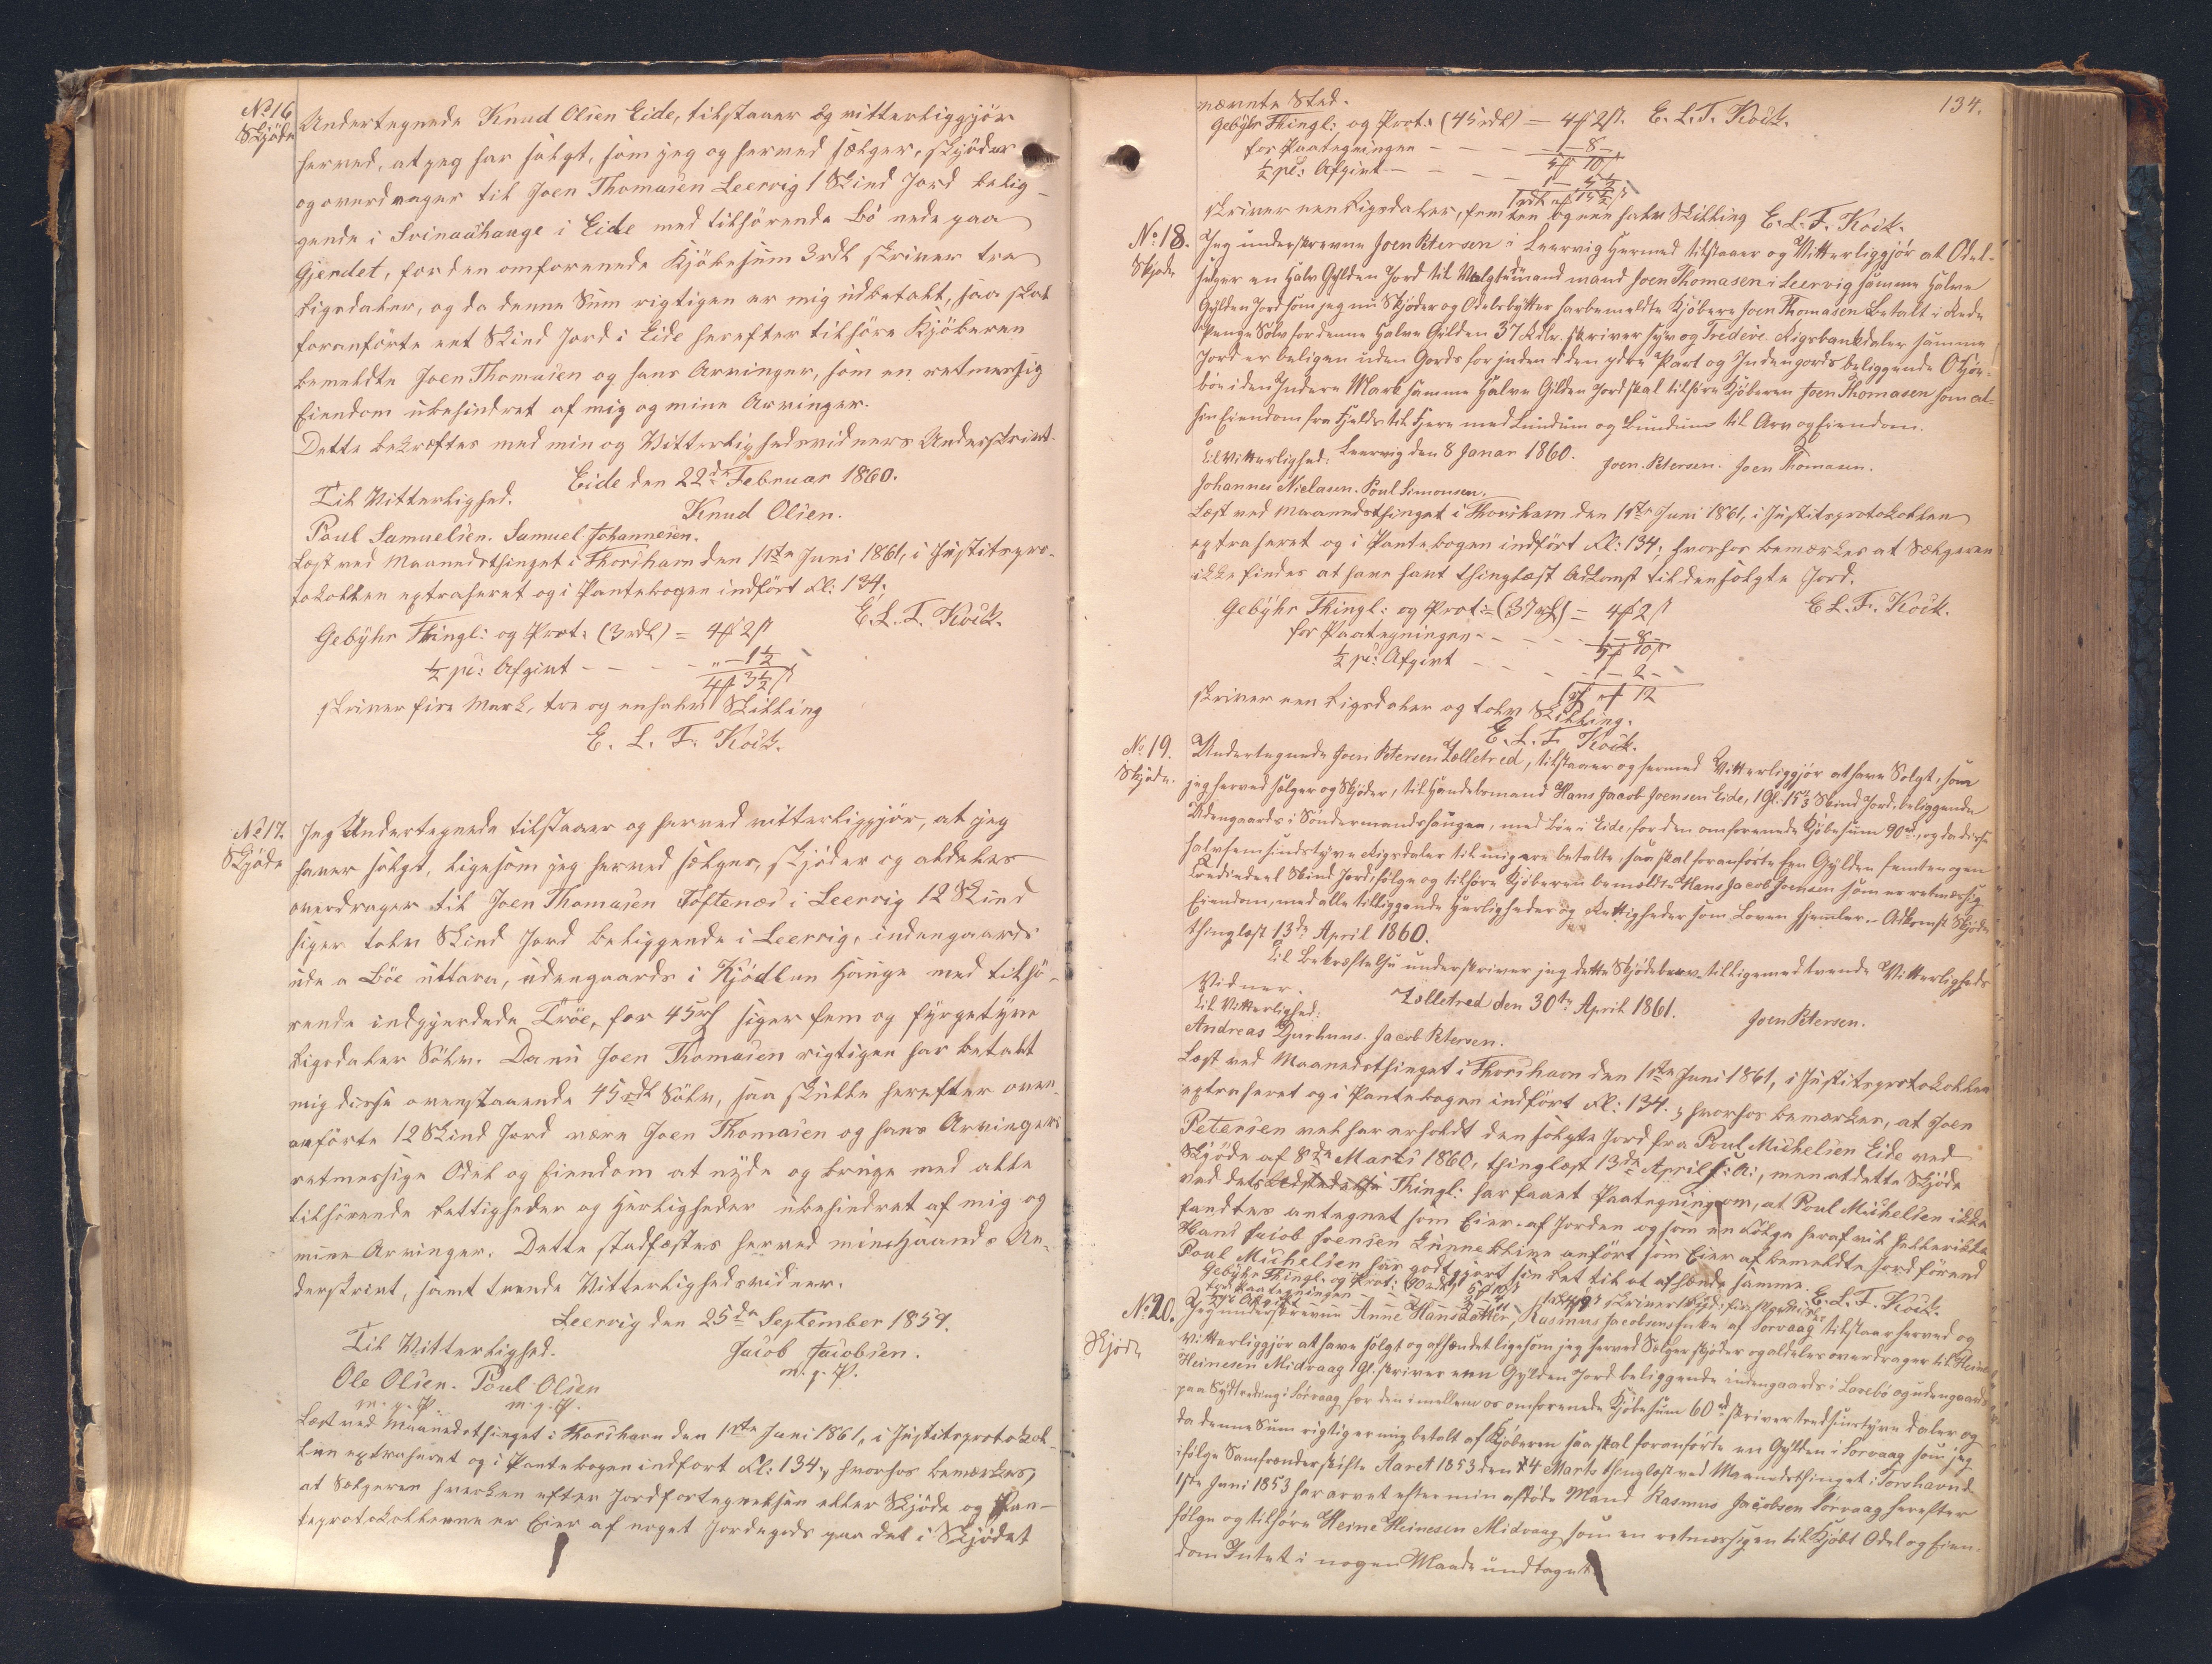 No 16
Skjöde
Undertegnede Knud Olsen Eide, tilstaaer og vitterliggjör
herved, at jeg har solgt, som jeg og herved sælger, skjöder
og overdrager til Joen Thomasen Leervig 1 Skind Jord belig-
gende i Svinaahauge i Eide med tilhörende Bö nede paa
Gjerdet, for den omforenede Kjöbesum 3 rdl skriver tre
Rigsdaler, og da denne Sum rigtigen er mig udbetalt, saa skal
foranförte eet Skind Jord i Eide herefter tilhöre Kjöberen
bemeldte Joen Thomasen og hans Arvinger, som en retmessig
Eiendom ubehindret af mig og mine Arvinger.
Dette bekræftes med min og Vitterlighedsvidners Underskrivt.
Eide den 22de Februar 1860.
Til Vitterlighed.
Knud Olsen.
Poul Samuelsen. Samuel Johannesen.
Læst ved Maanedsthinget i Thorshavn den 1ste Juni 1861, i Justitspro-
tokollen extraheret og i Pantebogen indfört Fl: 134;
E. L. F. Kock.
Gebyhr Thingl: og Prot: (3 rdl) = 4 ₰ 2 ß
½ pc: Afgivt - - - - " - 1½
4 ₰ 3½ ß
skriver fire Mark, tre og en halv Skilling
E. L. F. Kock.
No 17.
Skjöde
Jeg Undertegnede tilstaaer og herved vitterliggjör, at jeg
haver solgt, ligesom jeg herved sælger, skjöder og aldeles
overdrager til Joen Thomasen Toftenæs i Leervig 12 Skind
siger tolv Skind Jord beliggende i Leervig, indengaards
ude a Böe uttara, udengaards i Kjödlun Hauge med tilhö-
rende indgjerdede Tröe, for 45 rd siger fem og fyrgetyve
Rigsdaler Sölv. Da nu Joen Thomasen rigtigen har betalt
mig disse ovenstaaende 45 rdl Sölv, saa skulle herefter oven-
anförte 12 Skind Jord være Joen Thomasen og hans Arvingers
retmessige Odel og Eiendom at nyde og bruge med alle
tilhörende Rettigheder og Herligheder ubehindret af mig og
mine Arvinger. Dette stadfæstes herved min Haands Un-
derskrivt, samt tvende Vitterlighedsvidner.
Leervig den 25de September 1859.
Til Vitterlighed.
Jacob Jacobsen.
m. p. P.
Ole Olsen. Poul Olsen
m. p. P. m. p. P.
Læst ved Maanedsthinget i Thorshavn den 1ste Juni 1861, i Justitsprotokol-
len extraheret og i Pantebogen indfört Fl: 134, hvorhos bemærkes,
at Sælgeren hverken efter Jordfortegnelsen eller Skjöde og Pan-
teprotokollerne er Eier af noget Jordegods paa det i Skjödet
134.
nævnte Sted.
Gebyhr Thingl: og Prot: (45 rdl) = 4 ₰ 2 ß. E. L. F. Kock.
for Paategningen - - - 1 - 8 -
5 ₰ 10 ß
½ pc: Afgivt - - - - 1 - 5½
skriver een Rigsdaler, femten og een halv Skilling E. L. F. Kock.
No. 18.
Skjøde
Jeg underskrevne Joen Petersen i Leervig Hermed tilstaaer og Vitterliggjör at Odel-
sælger en Halv Gylden Jord til Valgbudmand mand Joen Thomasen i Leervig samme Halve
Gylden Jord som jeg nu Skjøder og Odelsbytter harbemeldte Kjøbere Joen Thomasen Betalt i Rede
Penge Sölv for denne Halve Gilden 37 Rdlr. skriver syv og Tredeve Rigsbankdaler samme
Jord er beligen uden Gords for den ydre Part og Indengords beliggende
böe i den Indere Mark samme Halve Gilden Jord skal tilhöre Kjøberen Joen Thomasen som al-
sin Eiendom fra Fjelde til Fjere med Lundum og Bundum til Arv og Eiendom.
Leervig den 8 Januar 1860.
Til Vitterlighed.
Joen Petersen. Joen Thomasen.
Johannes Nielasen. Poul Simonsen.
Læst ved Maanedsthinget i Thorshavn den 1ste Juni 1861, i Justitsprotokollen
extraheret og i Pantebogen indfört Fl: 134; hvorhos bemærkes at Sælgeren
ikke findes at have havt thinglæst Adkomst til den solgte Jord.
E. L. F. Kock.
Gebyhr Thingl: og Prot: (37 rd) = 4 ₰ 2 ß
for Paategningen - - - 1 - 8 -
5 ₰ 10 ß
½ pc: Afgivt - - - 1 - 2 -
skriver een Rigsdaler og tolv Skilling.
E. L. F. Kock.
No. 19.
Skjøde.
Undertegnede Joen Petersen Zelletræd, tilstaaer og hermed Vitterliggjör at have Solgt, som
jeg herved sælger og Skjøder, til Handelsmand Hans Jacob Joensen Eide, 1 Gl. 15⅓ Skind Jord, beliggende
Udengaards i Söndermandshaugen, med Böe i Eide, for den omforenede Kjøbesum 90 rd, og da disse
halvfemsindstyve Rigsdaler til mig ere betalte, saa skal foranförte Een Gylden femten og en
Trediedeel Skind Jord, fölge og tilhöre Kjøberen bemeldte Hans Jacob Joensen som en retmæssig
Eiendom, med alle tilliggende Herligheder og Rettigheder som Loven hjemler. - Adkomst Skjøde
thinglæst 13de April 1860.
Til Bekræftelse underskriver jeg dette Skjødebrev tilligemed tvende Vitterligheds
Vidner.
Zelletræd den 30te April 1861.
Til Vitterlighed:
Joen Petersen.
Andreas Djurhuus. Jacob Petersen.
Læst ved Maanedsthinget i Thorshavn den 1ste Juni 1861, i Justitsprotokollen
extraheret og i Pantebogen indfört Fl: 134; hvorhos bemærkes, at Joen
Petersen vel har erholdt den solgte Jord fra Poul Michelsen Eide ved
Skjöde af 8de Marts 1860, thinglæst 13de April s: A:, men at dette Skjöde
ved dets Thingl: har faaet Paategning om, at Poul Michelsen ikke
fandtes antegnet som Eier af Jorden og som en Fölge heraf
Hans Jacob Joensen anfört som Eier af bemeldte Jord förend
Poul Michelsen har godtgjort sin Ret til at afhænde samme.
E. L. F. Kock.
Gebyhr Thingl: og Prot: 90 rdl
for Paategningen
No. 20.
Skjøde
Jeg underskrevne Anne Hansdatter, Rasmus Jacobsens Enke af Sorvaag tilstaar herved og
Vitterliggjör at have solgt og afhændet ligesom jeg herved Sælger skjøder og aldeles overdrager til Heine
Heinesen Midvaag 1 Gl. skriver een Gylden Jord beliggende indengaards i Lorebö og udengaards
paa i Sörvaag for den imellem os omforenede Kjøbesum 60 rd skriver tredsinstyve daler og
da denne Sum rigtig er mig betalt af Kjøberen saa skal foranförte en Gylden i Sorvaag som jeg
ifölge Samfrændeskifte Aaret 1853 den 4 Marts thinglæst ved Maanedsthinget i Torshavn d
1ste Juni 1853 har arvet efter min afdöde Mand Rasmus Jacobsen Sörvaag herefter
fölge og tilhöre Heine Heinesen Midvaag som en retmæssigen til Kjøbt Odel og Eien-
dom Intet i nogen Maade undtaget